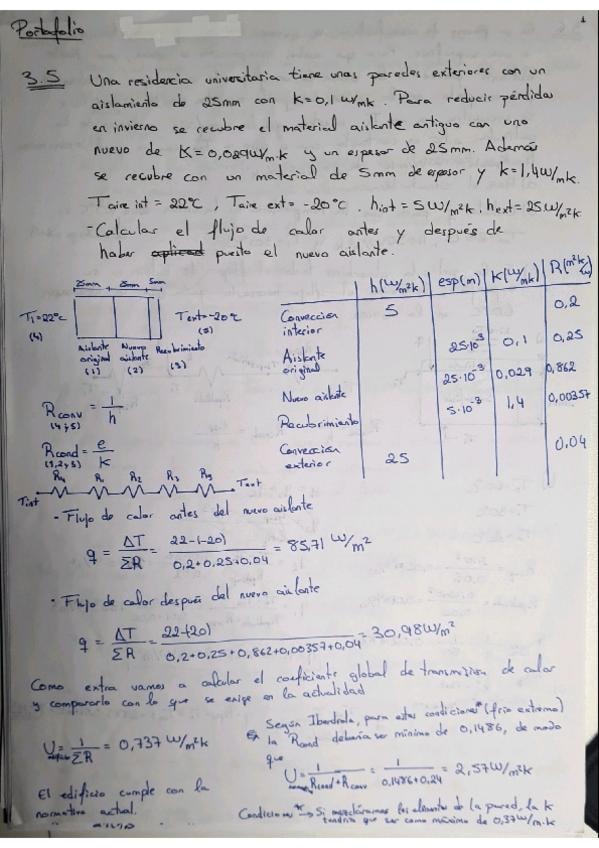 1
Portafolio
3.5 Una residencia universitaria tiene unas paredes exteriores con un
aislamiento de 25mm con K=0,1 W/mk. Para reducir pérdidas
en invierno se recubre el material aislante antiguo con uno
nuevo de K=0,029W/m·k y un espesor de 25mm. Además
se recubre con un material de 5mm de espesor y k=1,4W/mk.
T aire int = 22°C, T aire ext = -20°C. hint = 5W/m²k. hext = 25W/m²k
- Calcular el flujo de calor antes y después de
haber puesto el nuevo aislante.
25mm 25mm 5mm
T1=22°C (4)
Text=-20°C (5)
Aislante original (1)
Nuevo aislante (2)
Recubrimiento (3)
h(W/m²k) esp(m) K(W/mk) R(m²k/W)
Convección interior 5 0,2
Aislante original 25·10⁻³ 0,1 0,25
Nuevo aislante 25·10⁻³ 0,029 0,862
Recubrimiento 5·10⁻³ 1,4 0,00357
Convección exterior 25 0.04
Rconv (4 y 5) = 1/h
Rcond (1,2 y 3) = e/K
Tint R4 R1 R2 R3 R5 Text
- Flujo de calor antes del nuevo aislante
q = ΔT/ΣR = 22-(-20)/0,2+0,25+0,04 = 85,71 W/m²
- Flujo de calor después del nuevo aislante
q = ΔT/ΣR = 22-(-20)/0,2+0,25+0,862+0,00357+0,04 = 30,98W/m²
Como extra vamos a calcular el coeficiente global de transmisión de calor
y compararlo con lo que se exige en la actualidad
U = 1/ΣR = 0,737 W/m²k
Según Iberdrola, para estas condiciones* (frío extremo)
la Rcond debería ser mínimo de 0,1486, de modo
que
U = 1/Rcond+Rconv = 1/0,1486+0,24 = 2,57W/m²k
El edificio cumple con la
normativa actual.
Condiciones* → Si mezcláramos los elementos de la pared, la K
tendría que ser como máximo de 0,37W/m·k